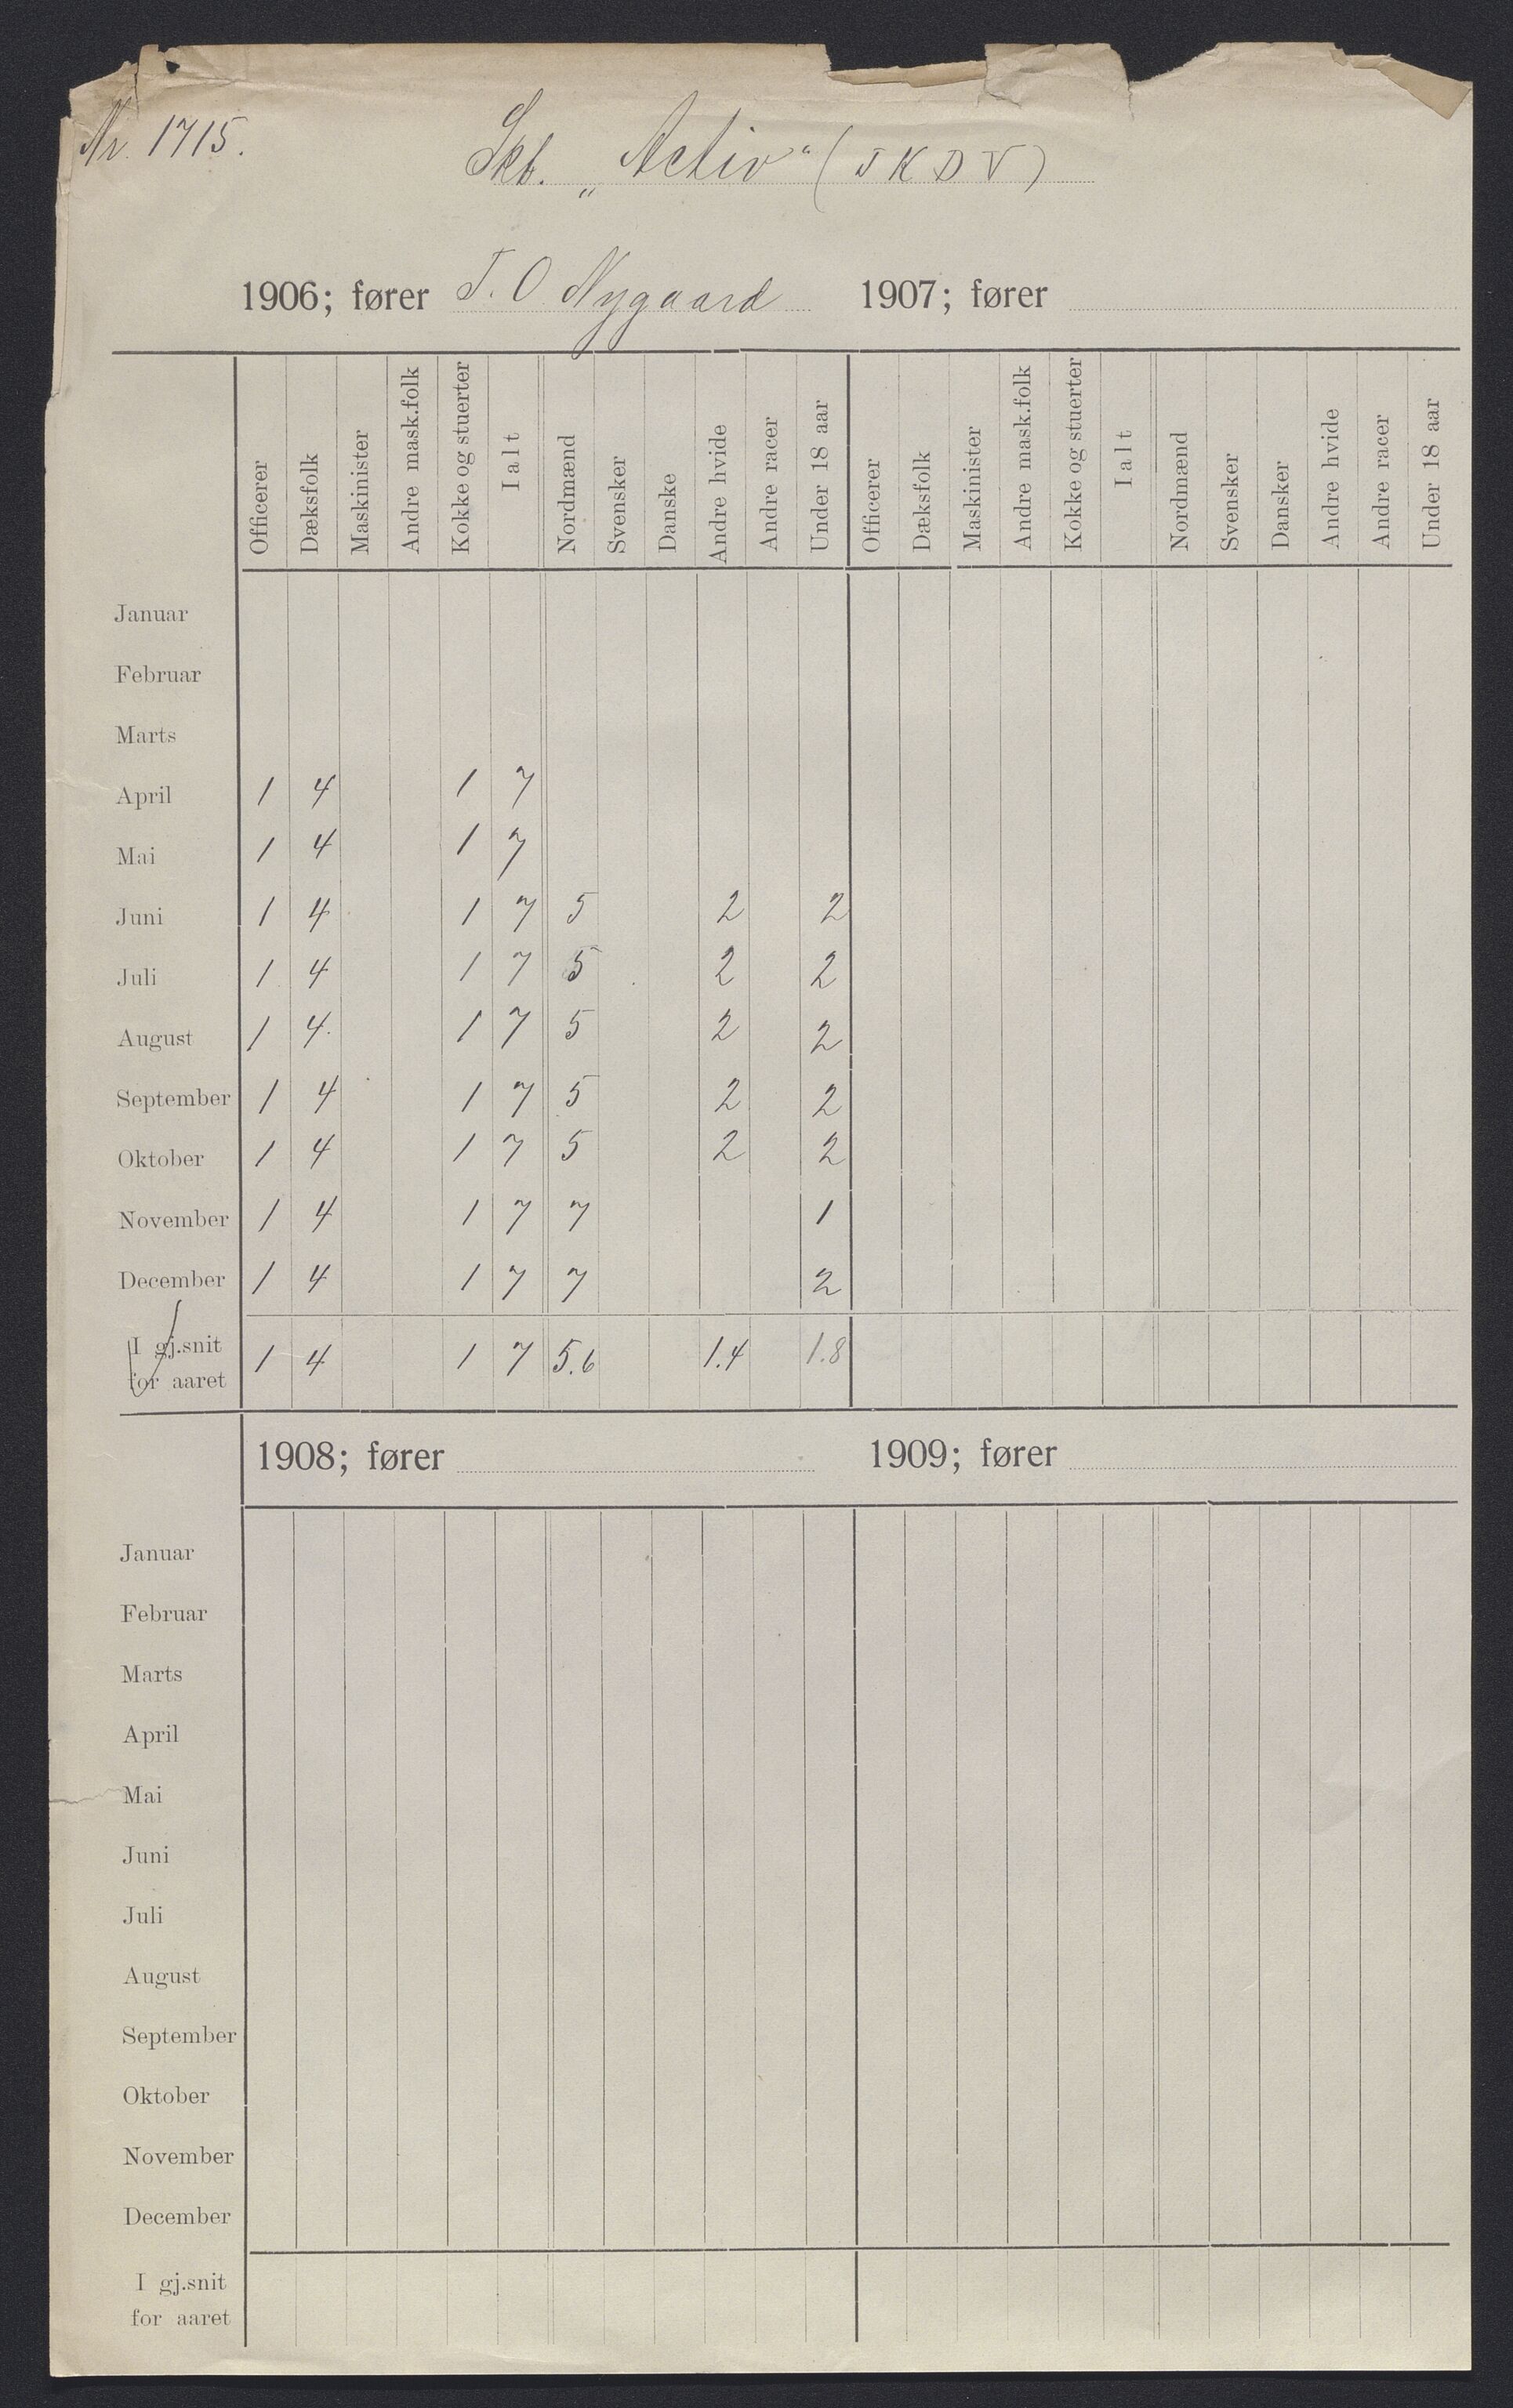 Nr. 1715.
Skb. „Activ“ (J K D V)
1906; fører J. O. Nygaard 1907; fører
Officerer Dæksfolk Maskinister Andre mask.folk Kokke og stuerter Ialt Nordmænd Svensker Danske Andre hvide Andre racer Under 18 aar Officerer Dæksfolk Maskinister Andre mask.folk Kokke og stuerter Ialt Nordmænd Svensker Dansker Andre hvide Andre racer Under 18 aar
Januar
Februar
Marts
April 1 4 1 7
Mai 1 4 1 7
Juni 1 4 1 7 5 2 2
Juli 1 4 1 7 5 2 2
August 1 4 1 7 5 2 2
September 1 4 1 7 5 2 2
Oktober 1 4 1 7 5 2 2
November 1 4 1 7 7 1
December 1 4 1 7 7 2
I gj.snit
for aaret 1 4 1 7 5.6 1.4 1.8
1908; fører 1909; fører
Januar
Februar
Marts
April
Mai
Juni
Juli
August
September
Oktober
November
December
I gj.snit
for aaret